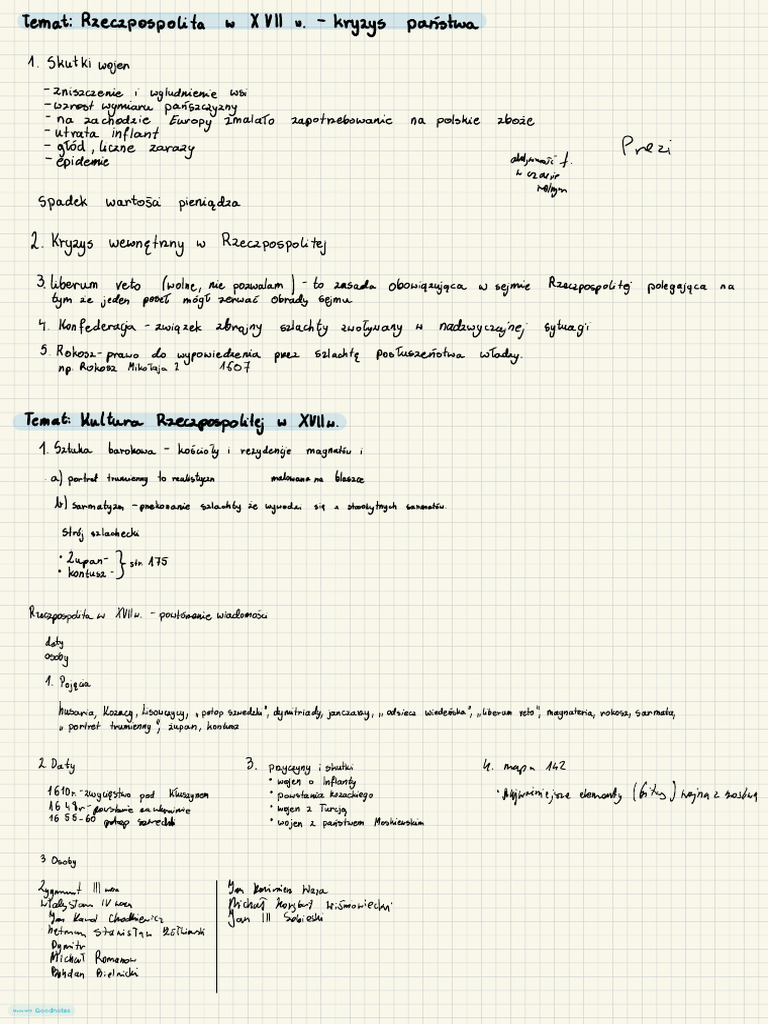 Temat: Rzeczpospolita w XVII w. - kryzys państwa
1. Skutki wojen
- zniszczenie i wyludnienie wsi
- wzrost wymiaru pańszczyzny
- na zachodzie Europy zmalało zapotrzebowanie na polskie zboże
- utrata inflant
- głód, liczne zarazy
- epidemie
Prezi
w czasie
Spadek wartości pieniądza
2. Kryzys wewnętrzny w Rzeczpospolitej
3. liberum veto (wolne, nie pozwalam) - to zasada obowiązująca w sejmie Rzeczpospolitej polegająca na
tym że jeden poseł mógł zerwać obrady sejmu
4. Konfederacja - związek zbrojny szlachty zwoływany w nadzwyczajnej sytuacji
5. Rokosz - prawo do wypowiedzenia przez szlachtę posłuszeństwa władzy.
np. Rokosz Mikołaja Z 1607
Temat: Kultura Rzeczpospolitej w XVII w.
1. Sztuka barokowa - kościoły i rezydencje magnatów i
a) portret trumienny to realistyczn malowane na blaszce
b) sarmatyzm - przekonanie szlachty że wywodzi się z starożytnych sarmatów.
strój szlachecki
• Żupan -
• kontusz - } str. 175
Rzeczpospolita w XVII w. - powtórzenie wiadomości
daty
osoby
1. Pojęcia
husaria, Kozacy, Lisowczycy, „potop szwedzki", dymitriady, janczarzy, „odsiecz wiedeńska", „liberum veto", magnateria, rokosz, sarmata,
„portret trumienny", żupan, kontusz
2 Daty
1610r. - zwycięstwo pod Kłuszynem
1648r - powstanie na ukrainie
1655-60 potop szwedzki
3. przyczyny i skutki
• wojen o Inflanty
• powstania kozackiego
• wojen z Turcją
• wojen z państwem Moskiewskim
4. mapa 142
• Najważniejsze elementy (bitwy) wojna z
3 Osoby
Zygmunt III waza
Władysław IV waza
Jan Karol Chodkiewicz
hetman Stanisław Żółkiewski
Dymitr
Michał Romanow
Bohdan
Jan Kazimierz Waza
Michał Korybut Wiśniowiecki
Jan III Sobieski
Made with Goodnotes